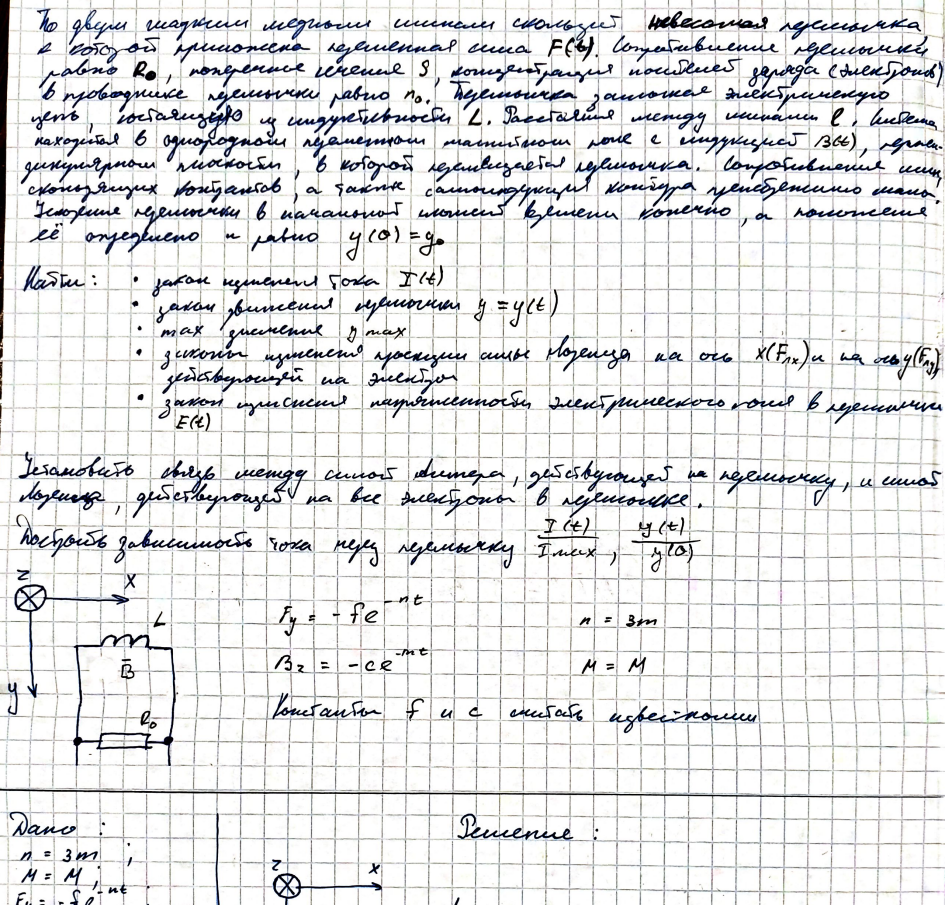 По двум гладким медным шинам скользит невесомая перемычка,
к которой приложена переменная сила F(t). Сопротивление перемычки
равно R₀, поперечное сечение S, концентрация носителей заряда (электронов)
в проводнике перемычки равно n₀. Перемычка замыкая электрическую
цепь, состоящую из индуктивности L. Расстояния между шинами l. Система
находится в однородном переменном магнитном поле с индукцией B(t), перпен-
дикулярном плоскости, в которой перемещается перемычка. Сопротивление шин,
скользящих контактов, а также самоиндукция контура пренебрежимо мало.
Ускорение перемычки в начальной момент времени конечно, а положение
её определено и равно y(0) = y₀
Найти: • закон изменения тока I(t)
• закон движения перемычки y = y(t)
• max значение y max
• законы изменения проекции силы Лоренца на ось x(Fлx) и на ось y(Fлy),
действующей на электрон
• закон изменения напряженности электрического поля в перемычке
E(t)
Установить связь между силой Ампера, действующей на перемычку, и силой
Лоренца, действующей на все электроны в перемычке.
Построить зависимость тока через перемычку I(t)/Imax, y(t)/y(0)
z x
L
B̄
y
R₀
Fy = -fe^{-nt} n = 3m
Bz = -ce^{-mt} M = M
Константы f и c считать известными
Дано: Решение:
n = 3m ;
M = M ;
Fy = -fe^{-nt}
z x